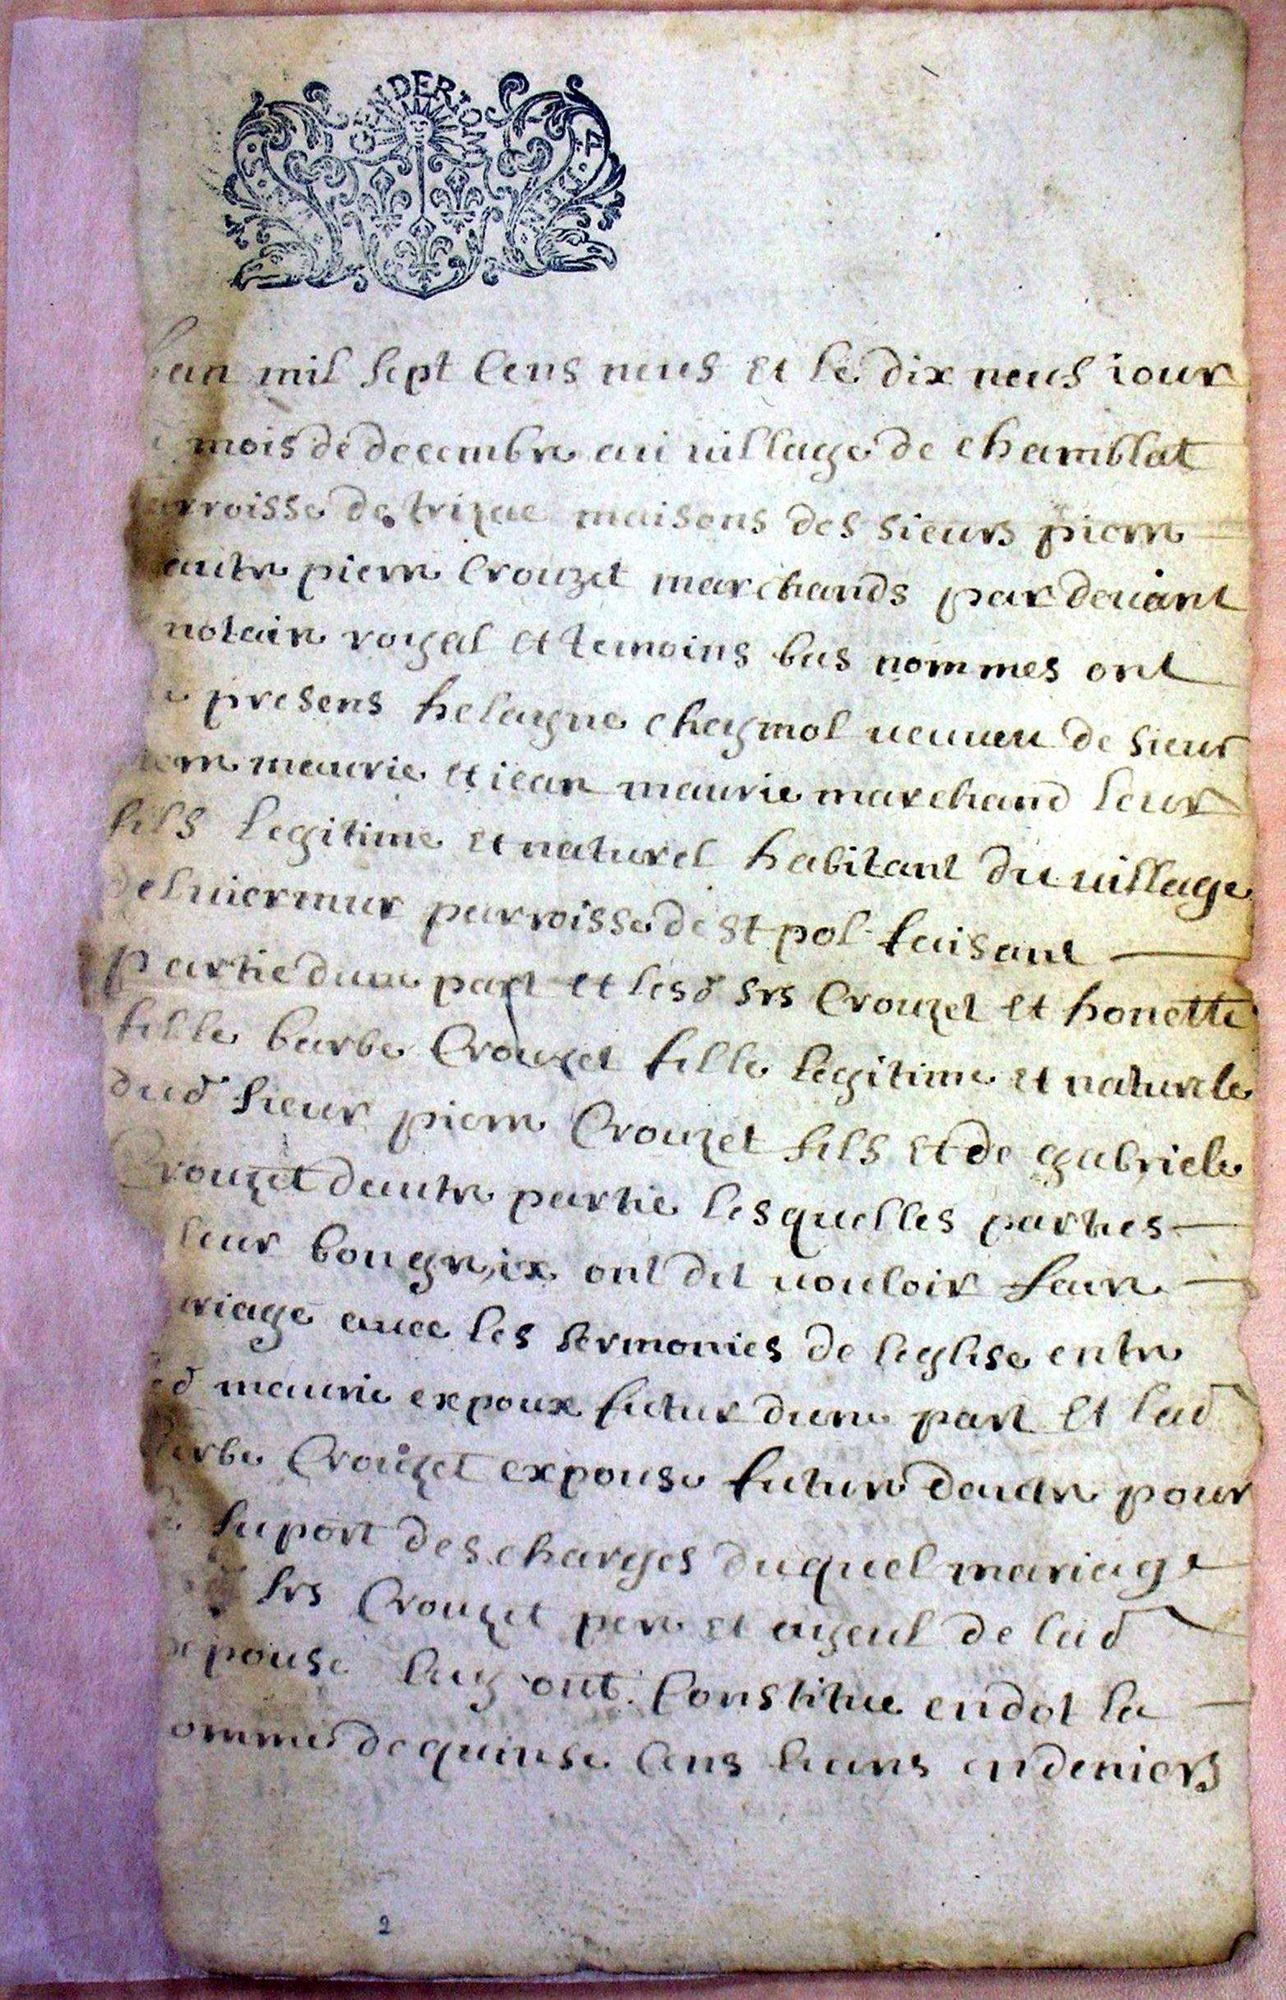 GENDERIOM
lan mil sept Cens neuf et le dix neuf iour
mois de decembre au uillage de chamblat
parroisse de trizac maisons des sieurs pierre
autre pierre Crouzet marchands par deuant
notaire royal et temoins bas nommes ont
presens helayne chaymol ueuueu de sieur
meaurie et iean maurie marchand leur
fils legitime et naturel habitant du uillage
parroisse de st pol faisant
partie dune part et lesd srs Crouzet et honette
fille barbe Crouzet fille legitime et naturele
dud sieur pierre Crouzet fils et de gabriele
Crouzet dautre partie lesquelles parties
leur bon gre ont dit uouloir faire
riage auec les sermonies de leglise entre
maurie expoux futur dune part et lad
barbe Crouzet expouse future dautre pour
suport des charges duquel mariage
srs Crouzet pere et ayeul de lad
epouse luy ont Constitue en dot la
omme de quinse Cens liures en deniers
2